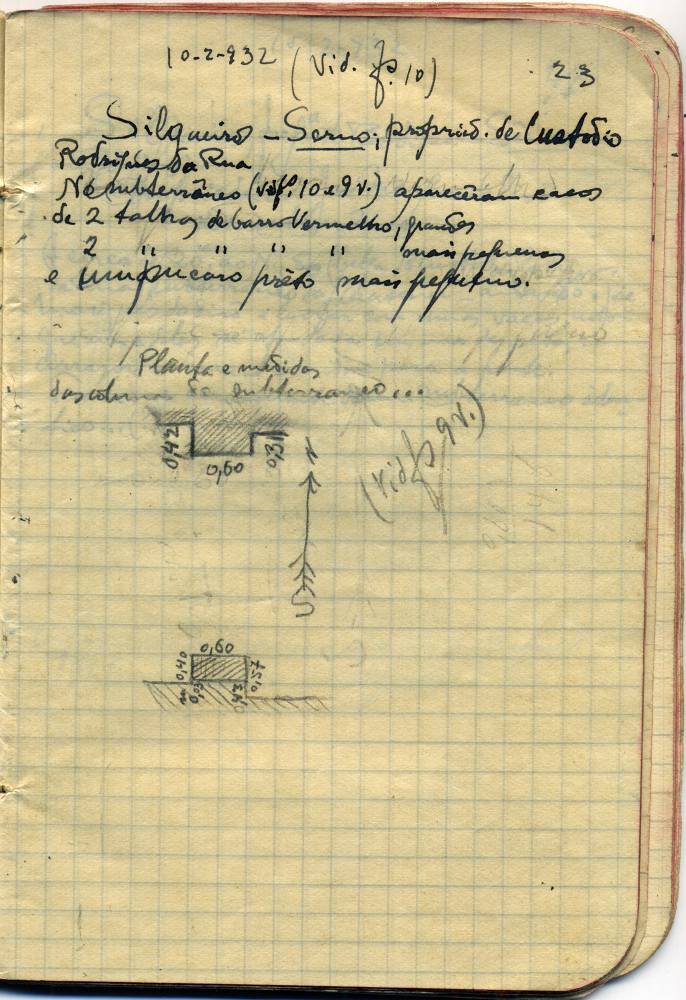 10-2-932 (Vid. fs. 10) 23
Silgueiros - Serno; propried. de Custodio
Rodrigues da Rua
No subterrâneo (vid fs. 10 e 9 v.) apareceram cacos
de 2 talhas de barro Vermelho, grandes
2 " " " " mais pequenas
e um pucaro prêto mais pequeno.
Planta e medidas
das colunas do subterraneo...
(Vid fs 9v.)
0,42 0,60 0,31
N
S
0,60
0,40 0,57
0,03